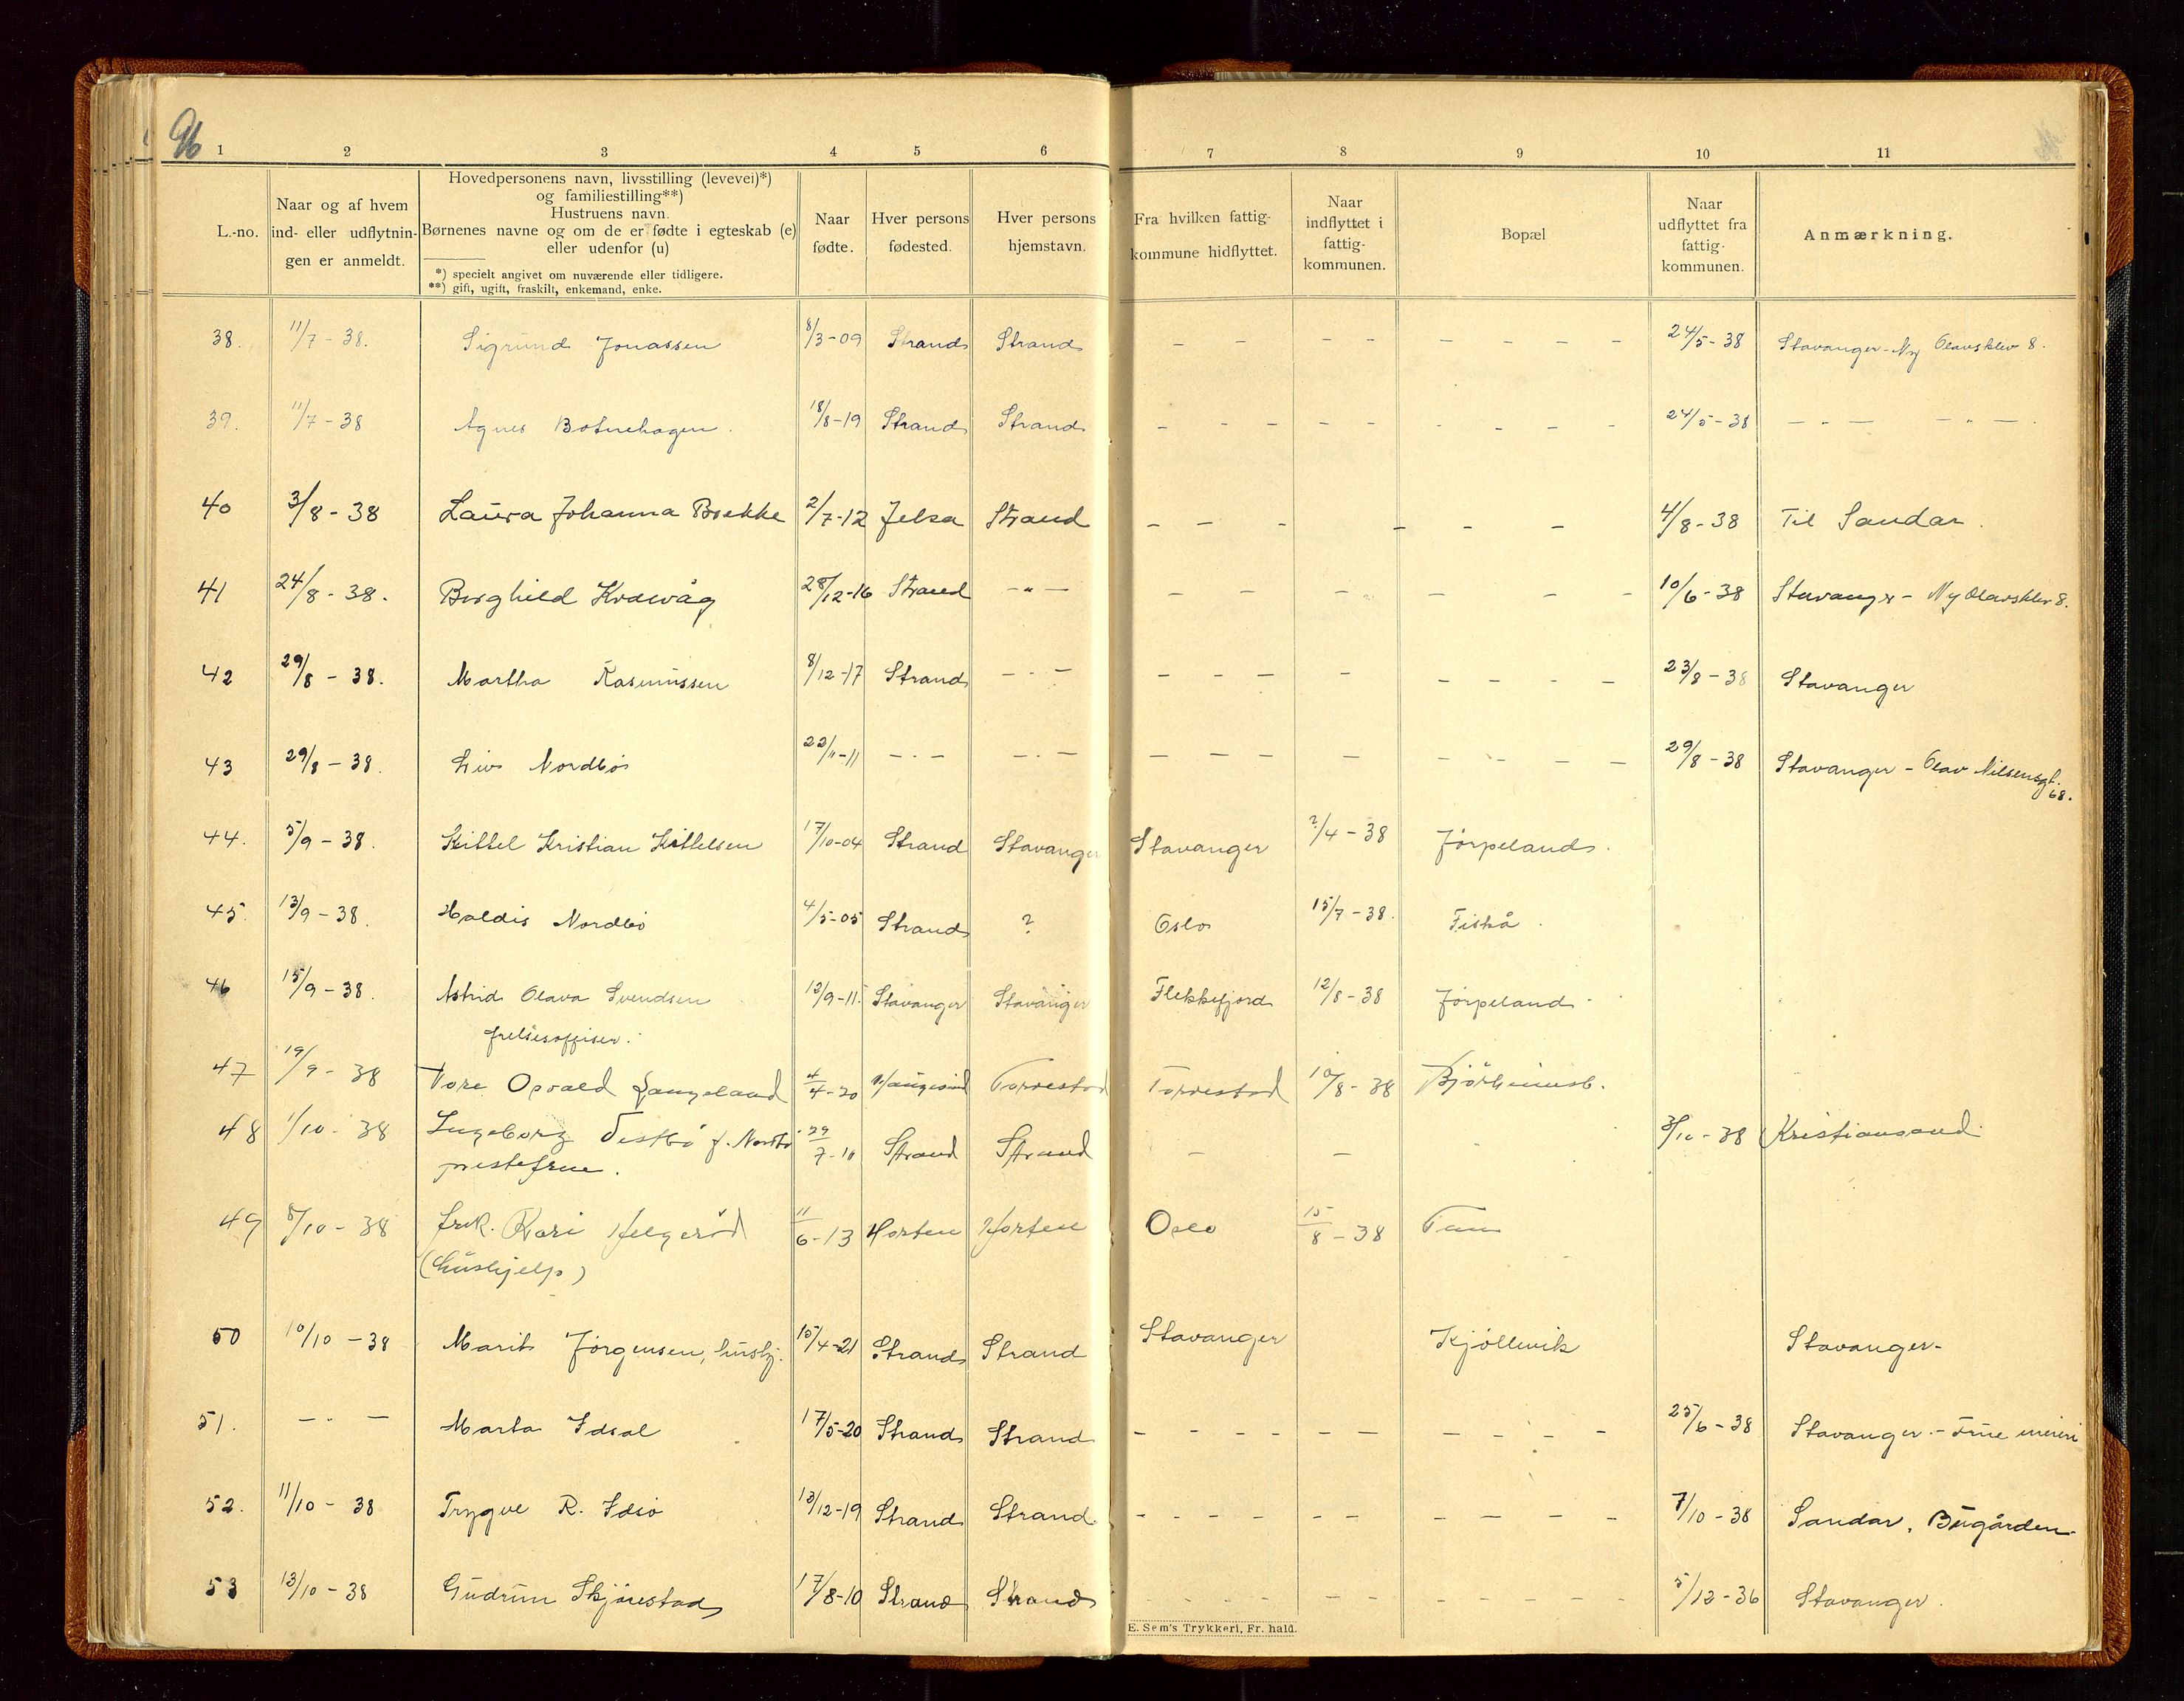 96
1 2 3 4 5 6 7 8 9 10 11
L.-no.
Naar og af hvem
ind- eller udflytnin-
gen er anmeldt.
Hovedpersonens navn, livsstilling (levevei)*)
og familiestilling**)
Hustruens navn.
Børnenes navne og om de er fødte i egteskab (e)
eller udenfor (u)
*) specielt angivet om nuværende eller tidligere.
**) gift, ugift, fraskilt, enkemand, enke.
Naar
fødte.
Hver persons
fødested.
Hver persons
hjemstavn.
Fra hvilken fattig-
kommune hidflyttet.
Naar
indflyttet i
fattig-
kommunen.
Bopæl
Naar
udflyttet fra
fattig-
kommunen.
Anmærkning.
38. 11/7 - 38. Sigrund Jonassen 8/3-09 Strand Strand - - - - - - - - 24/5-38 Stavanger - Ny Olavsklev 8.
39. 11/7 - 38 Agnes Botnehagen. 18/8-19 Strand Strand - - - - - - - - - 24/5-38 - " - - " -.
40 3/8 - 38 Laura Johanna Brekke 2/7-12 Jelsa Strand - - - - - - 4/8-38 Til Sandar.
41 24/8 - 38. Borghild Kravåg 28/12-16 Strand - " - - - - - - - - - 10/6-38 Stavanger - Ny Olavsklev 8.
42 29/8 - 38. Martha Rasmussen 8/12-17 Strand - " - - - - - - - - - 23/8-38 Stavanger
43 29/8 - 38. Liv Nordbø 22/11-11 - " - - " - - - - - - - - - 29/8-38 Stavanger - Olav Nilsensgt.
68.
44. 5/9 - 38. Kittel Kristian Kittelsen 17/10-04 Strand Stavanger Stavanger ?/4 - 38 Jørpeland.
45. 13/9 - 38. Haldis Nordbø 4/5-05 Strand ? Oslo 15/7 - 38. Fiskå.
46 15/9 - 38. Astrid Olava Svendsen 12/9-11. Stavanger Stavanger Flekkefjord 12/8 - 38 Jørpeland
frelsesoffiser.
47 19/9 - 38 Tore Osvald Langeland 4/4-20 Haugesund Torvestad Torvestad 10/8 - 38 Bjørheimsb.
48 1/10 - 38 Ingeborg Vestbø f. Nordbø 29/7-10 Strand Strand - - - 3/10 - 38 Kristiansand
prestefrue.
49 8/10 - 38 frk. Kari Helgerød 11/6-13 Horten Horten Oslo 15/8 - 38 Tau
(hushjelp)
50 10/10 - 38 Marit Jørgensen, hushj. 15/4-21 Strand Strand Stavanger Kjøllevik Stavanger-
51. - " - Marta Idsal 17/5-20 Strand Strand - - - - - - - - - - 25/6-38 Stavanger - Frue meieri
52. 11/10 - 38 Trygve R. Idsø 13/12-19 Strand Strand - - - - - - - - - - 7/10-38 Sandar, Bugården
53 13/10 - 38 Gudrun Skjørestad 17/8-10 Strand Strand - - - - - - - - - - 5/12-36 Stavanger.
E. Sem's Trykkeri, Fr. hald.